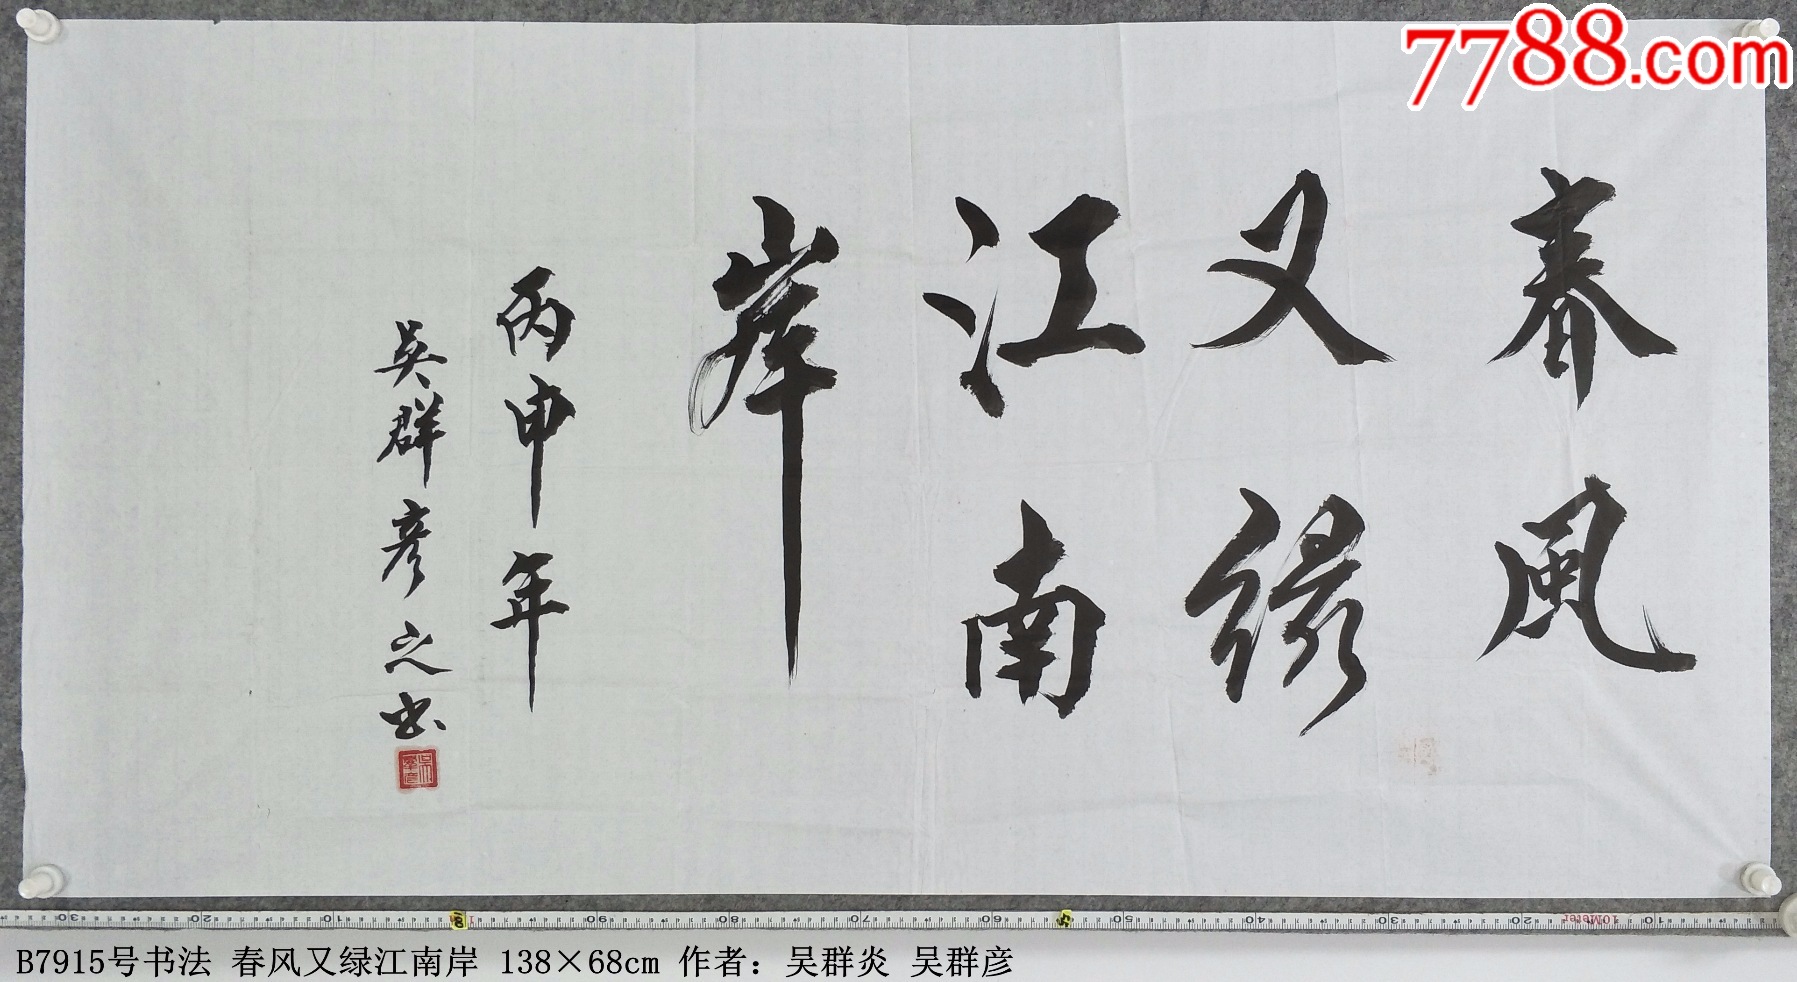 7788.com
春風
又緑
江南
岸
丙申年
吴群彦之书
B7915号书法 春风又绿江南岸 138×68cm 作者：吴群炎 吴群彦